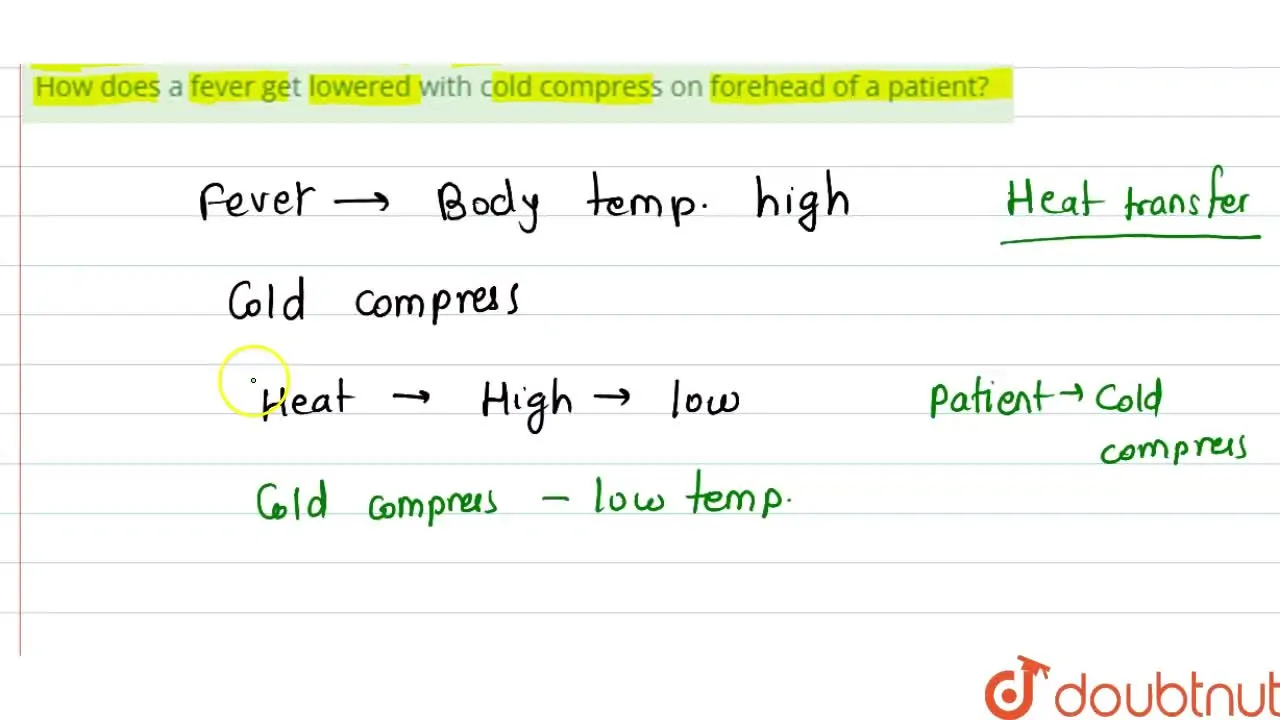 How does a fever get lowered with cold compress on forehead of a patient?
Fever → Body temp. high
Heat transfer
Cold compress
Heat → High → low
Patient → Cold
compress
Cold compress - low temp.
doubtnut